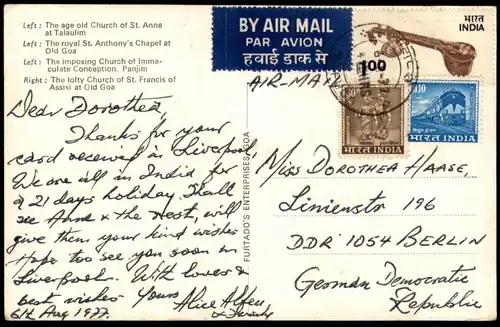 Left : The age old Church of St. Anne
at Talaulim
Left : The royal St. Anthony's Chapel at
Old Goa
Left : The imposing Church of Imma-
culate Conception. Panjim
Right : The lofty Church of St. Francis of
Assisi at Old Goa
BY AIR MAIL
PAR AVION
हवाई डाक से
AIR-MAIL
भारत
INDIA
1.00
भारत INDIA
भारत INDIA
FURTADO'S ENTERPRISES, GOA
Dear Dorothea,
Thanks for your
card received in Liverpool,
We are all in India for
a 21 days holiday. Shall
see Anne & the rest, will
give them your kind wishes
Hope too see you soon in
Liverpool. With love &
best wishes Yours
6th Aug 1977. Alice
& Family
Miss Dorothea Haase,
Linienstr 196
DDR 1054 BERLIN
German Democratic
Republic